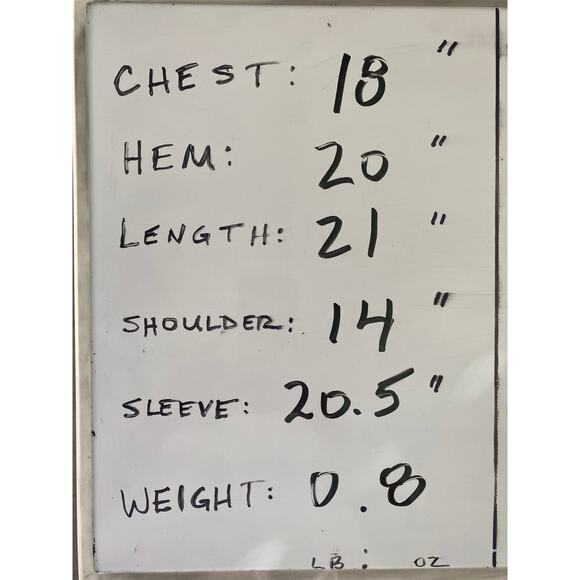 CHEST: 18 "
HEM: 20 "
LENGTH: 21 "
SHOULDER: 14 "
SLEEVE: 20.5 "
WEIGHT: 0.8
LB : OZ